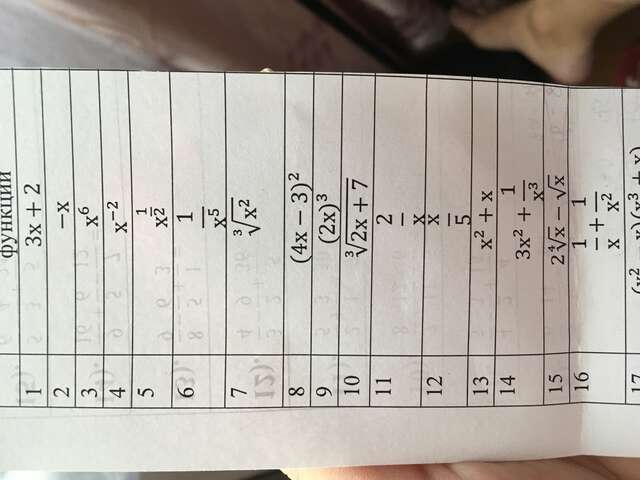 функции
1 3x + 2
2 −x
3 x⁶
4 x⁻²
5 x^(1/2)
6 1/x⁵
7 ∛(x²)
8 (4x − 3)²
9 (2x)³
10 ∛(2x + 7)
11 2/x
12 x/5
13 x² + x
14 3x² + 1/x³
15 2∜x − √x
16 1/x + 1/x²
17 (x² − x)(x³ + x)